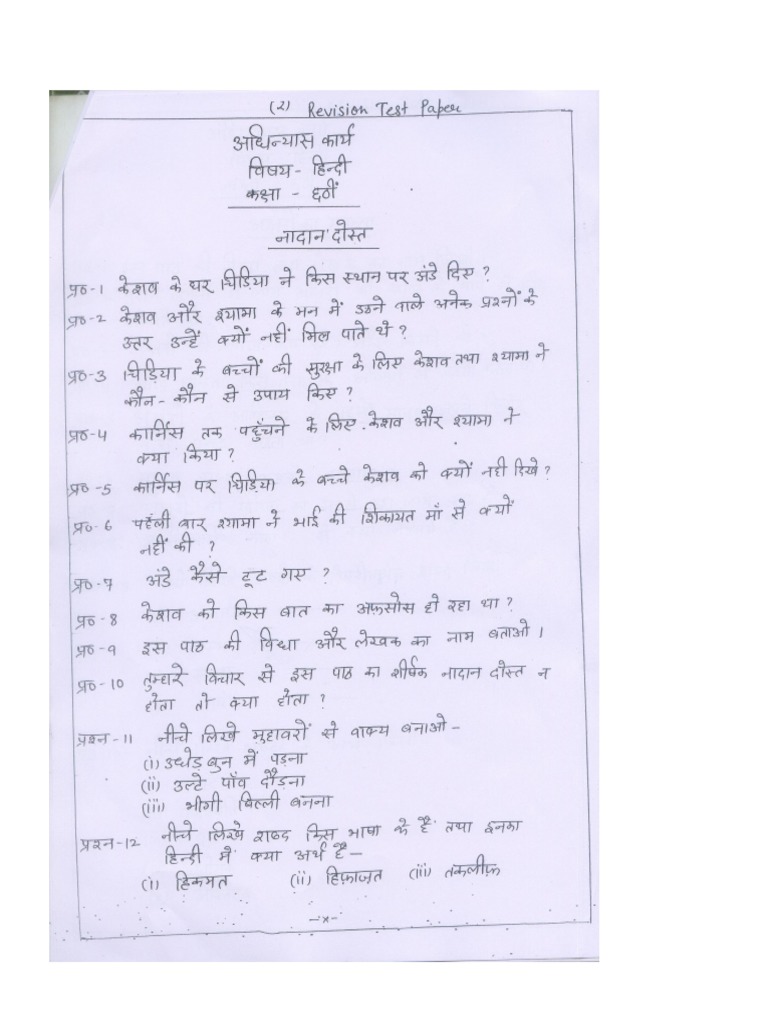 (2) Revision Test Paper
अधिन्यास कार्य
विषय - हिन्दी
कक्षा - छठीं
नादान दोस्त
प्र०-1 केशव के घर चिड़िया ने किस स्थान पर अंडे दिए ?
प्र०-2 केशव और श्यामा के मन में उठने वाले अनेक प्रश्नों के
उत्तर उन्हें क्यों नहीं मिल पाते थे ?
प्र०-3 चिड़िया के बच्चों की सुरक्षा के लिए केशव तथा श्यामा ने
कौन-कौन से उपाय किए ?
प्र०-4 कार्निस तक पहुँचने के लिए केशव और श्यामा ने
क्या किया ?
प्र०-5 कार्निस पर चिड़िया के बच्चे केशव को क्यों नही दिखे ?
प्र०-6 पहली बार श्यामा ने भाई की शिकायत माँ से क्यों
नहीं की ?
प्र०-7 अंडे कैसे टूट गए ?
प्र०-8 केशव को किस बात का अफ़सोस हो रहा था ?
प्र०-9 इस पाठ की विधा और लेखक का नाम बताओ ।
प्र०-10 तुम्हारे विचार से इस पाठ का शीर्षक नादान दोस्त न
होता तो क्या होता ?
प्रश्न-11 नीचे लिखे मुहावरों से वाक्य बनाओ -
(i) उधेड़ बुन में पड़ना
(ii) उल्टे पाँव दौड़ना
(iii) भीगी बिल्ली बनना
प्रश्न-12 नीचे लिखे शब्द किस भाषा के हैं तथा इनका
हिन्दी में क्या अर्थ है -
(i) हिकमत (ii) हिफ़ाज़त (iii) तकलीफ़
-x-